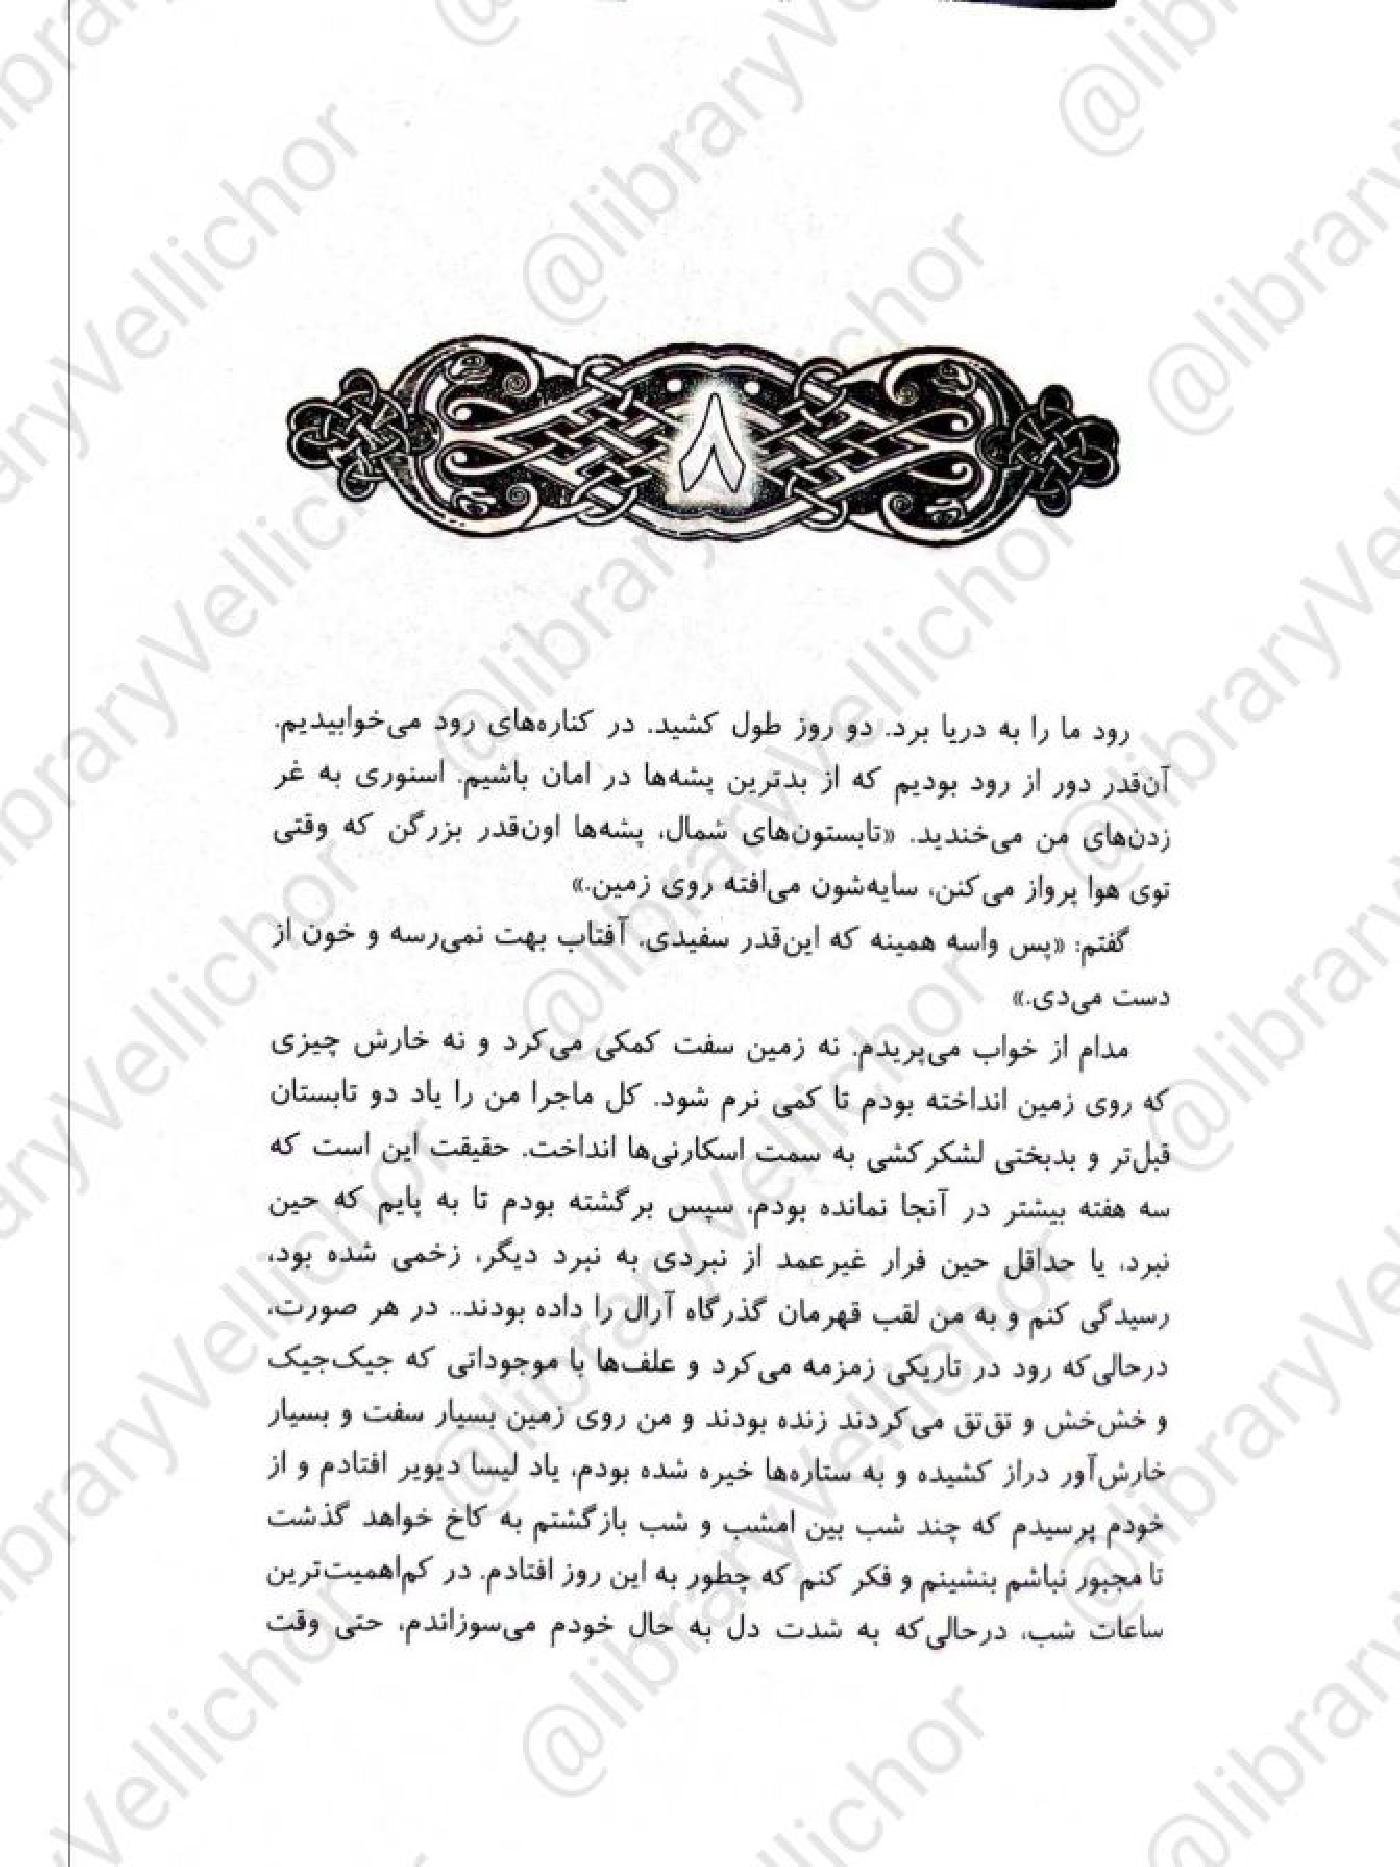 ۸
رود ما را به دریا برد. دو روز طول کشید. در کناره‌های رود می‌خوابیدیم.
آن‌قدر دور از رود بودیم که از بدترین پشه‌ها در امان باشیم. اسنوری به غر
زدن‌های من می‌خندید. «تابستون‌های شمال، پشه‌ها اون‌قدر بزرگن که وقتی
توی هوا پرواز می‌کنن، سایه‌شون می‌افته روی زمین.»
گفتم: «پس واسه همینه که این‌قدر سفیدی، آفتاب بهت نمی‌رسه و خون از
دست می‌دی.»
مدام از خواب می‌پریدم. نه زمین سفت کمکی می‌کرد و نه خارش چیزی
که روی زمین انداخته بودم تا کمی نرم شود. کل ماجرا من را یاد دو تابستان
قبل‌تر و بدبختی لشکرکشی به سمت اسکارنی‌ها انداخت. حقیقت این است که
سه هفته بیشتر در آنجا نمانده بودم، سپس برگشته بودم تا به پایم که حین
نبرد، یا حداقل حین فرار غیرعمد از نبردی به نبرد دیگر، زخمی شده بود،
رسیدگی کنم و به من لقب قهرمان گذرگاه آرال را داده بودند.. در هر صورت،
درحالی‌که رود در تاریکی زمزمه می‌کرد و علف‌ها با موجوداتی که جیک‌جیک
و خش‌خش و تق‌تق می‌کردند زنده بودند و من روی زمین بسیار سفت و بسیار
خارش‌آور دراز کشیده و به ستاره‌ها خیره شده بودم، یاد لیسا دیویر افتادم و از
خودم پرسیدم که چند شب بین امشب و شب بازگشتم به کاخ خواهد گذشت
تا مجبور نباشم بنشینم و فکر کنم که چطور به این روز افتادم. در کم‌اهمیت‌ترین
ساعات شب، درحالی‌که به شدت دل به حال خودم می‌سوزاندم، حتی وقت
@libraryVellichor